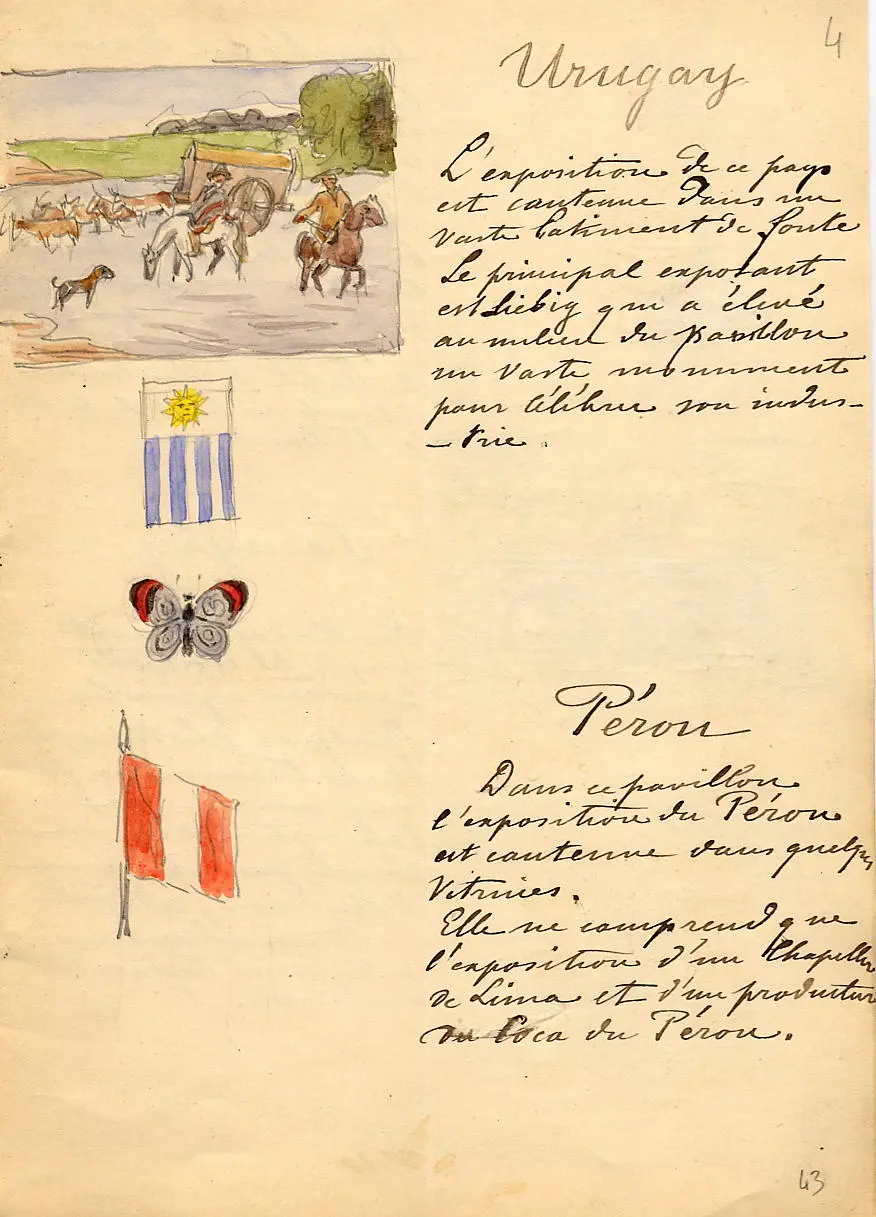 4
Urugay
L'exposition de ce pays
est contenue dans un
vaste batiment de fonte
Le principal exposant
est Liebig qui a élevé
au milieu du pavillon
un vaste monument
pour célébrer son indus-
-trie.
Pérou
Dans ce pavillon
l'exposition du Pérou
est contenue dans quelques
vitrines.
Elle ne comprend que
l'exposition d'un Chapellier
de Lima et d'un producteur
du Coca du Pérou.
43